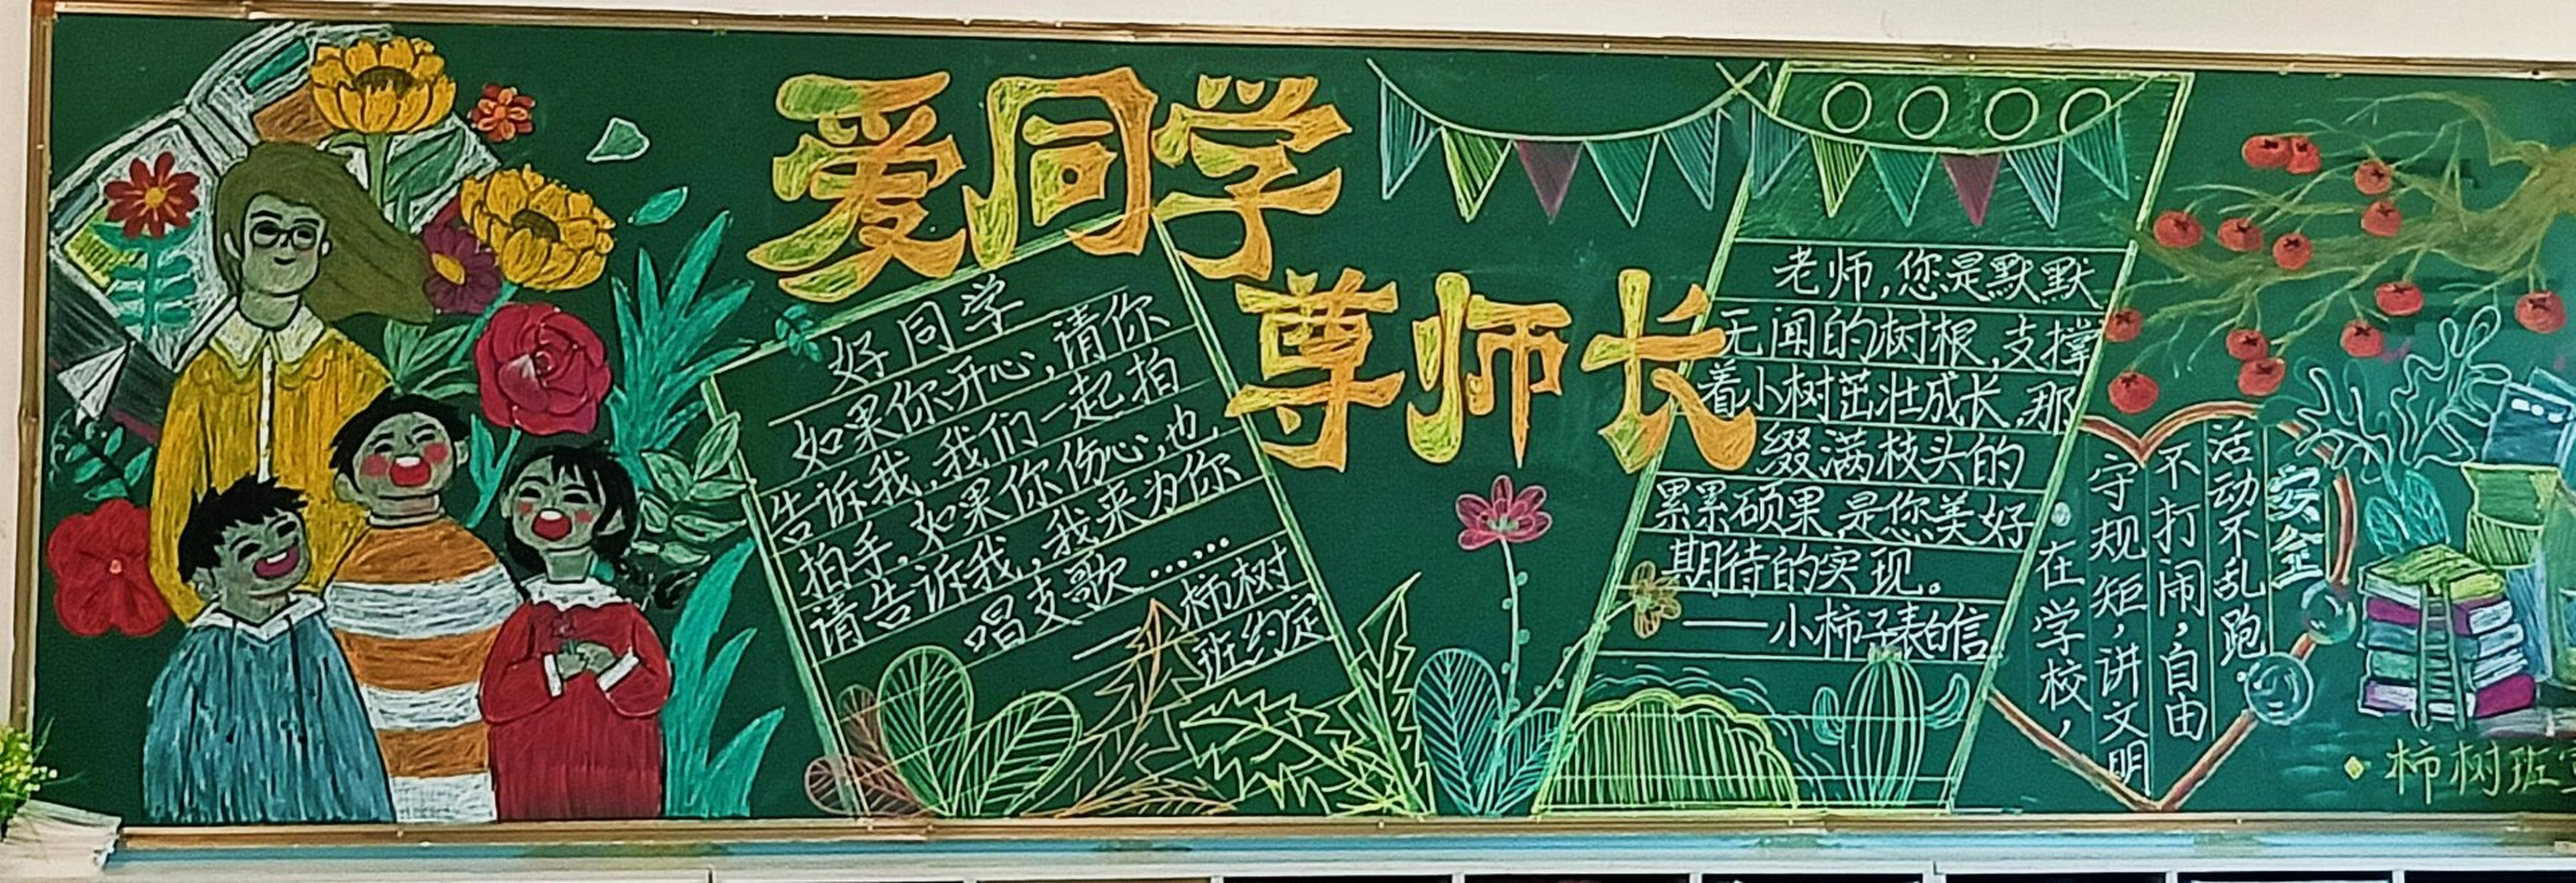 爱同学
尊师长
好同学
如果你开心,请你
告诉我,我们一起拍
拍手,如果你伤心,也
请告诉我,我来为你
唱支歌……
——柿树
班约定
老师,您是默默
无闻的树根,支撑
着小树茁壮成长,那
缀满枝头的
累累硕果,是您美好
期待的实现。
——小柿子表白信
安全
在学校,
守规矩,讲文明
不打闹,自由
活动不乱跑。
柿树班